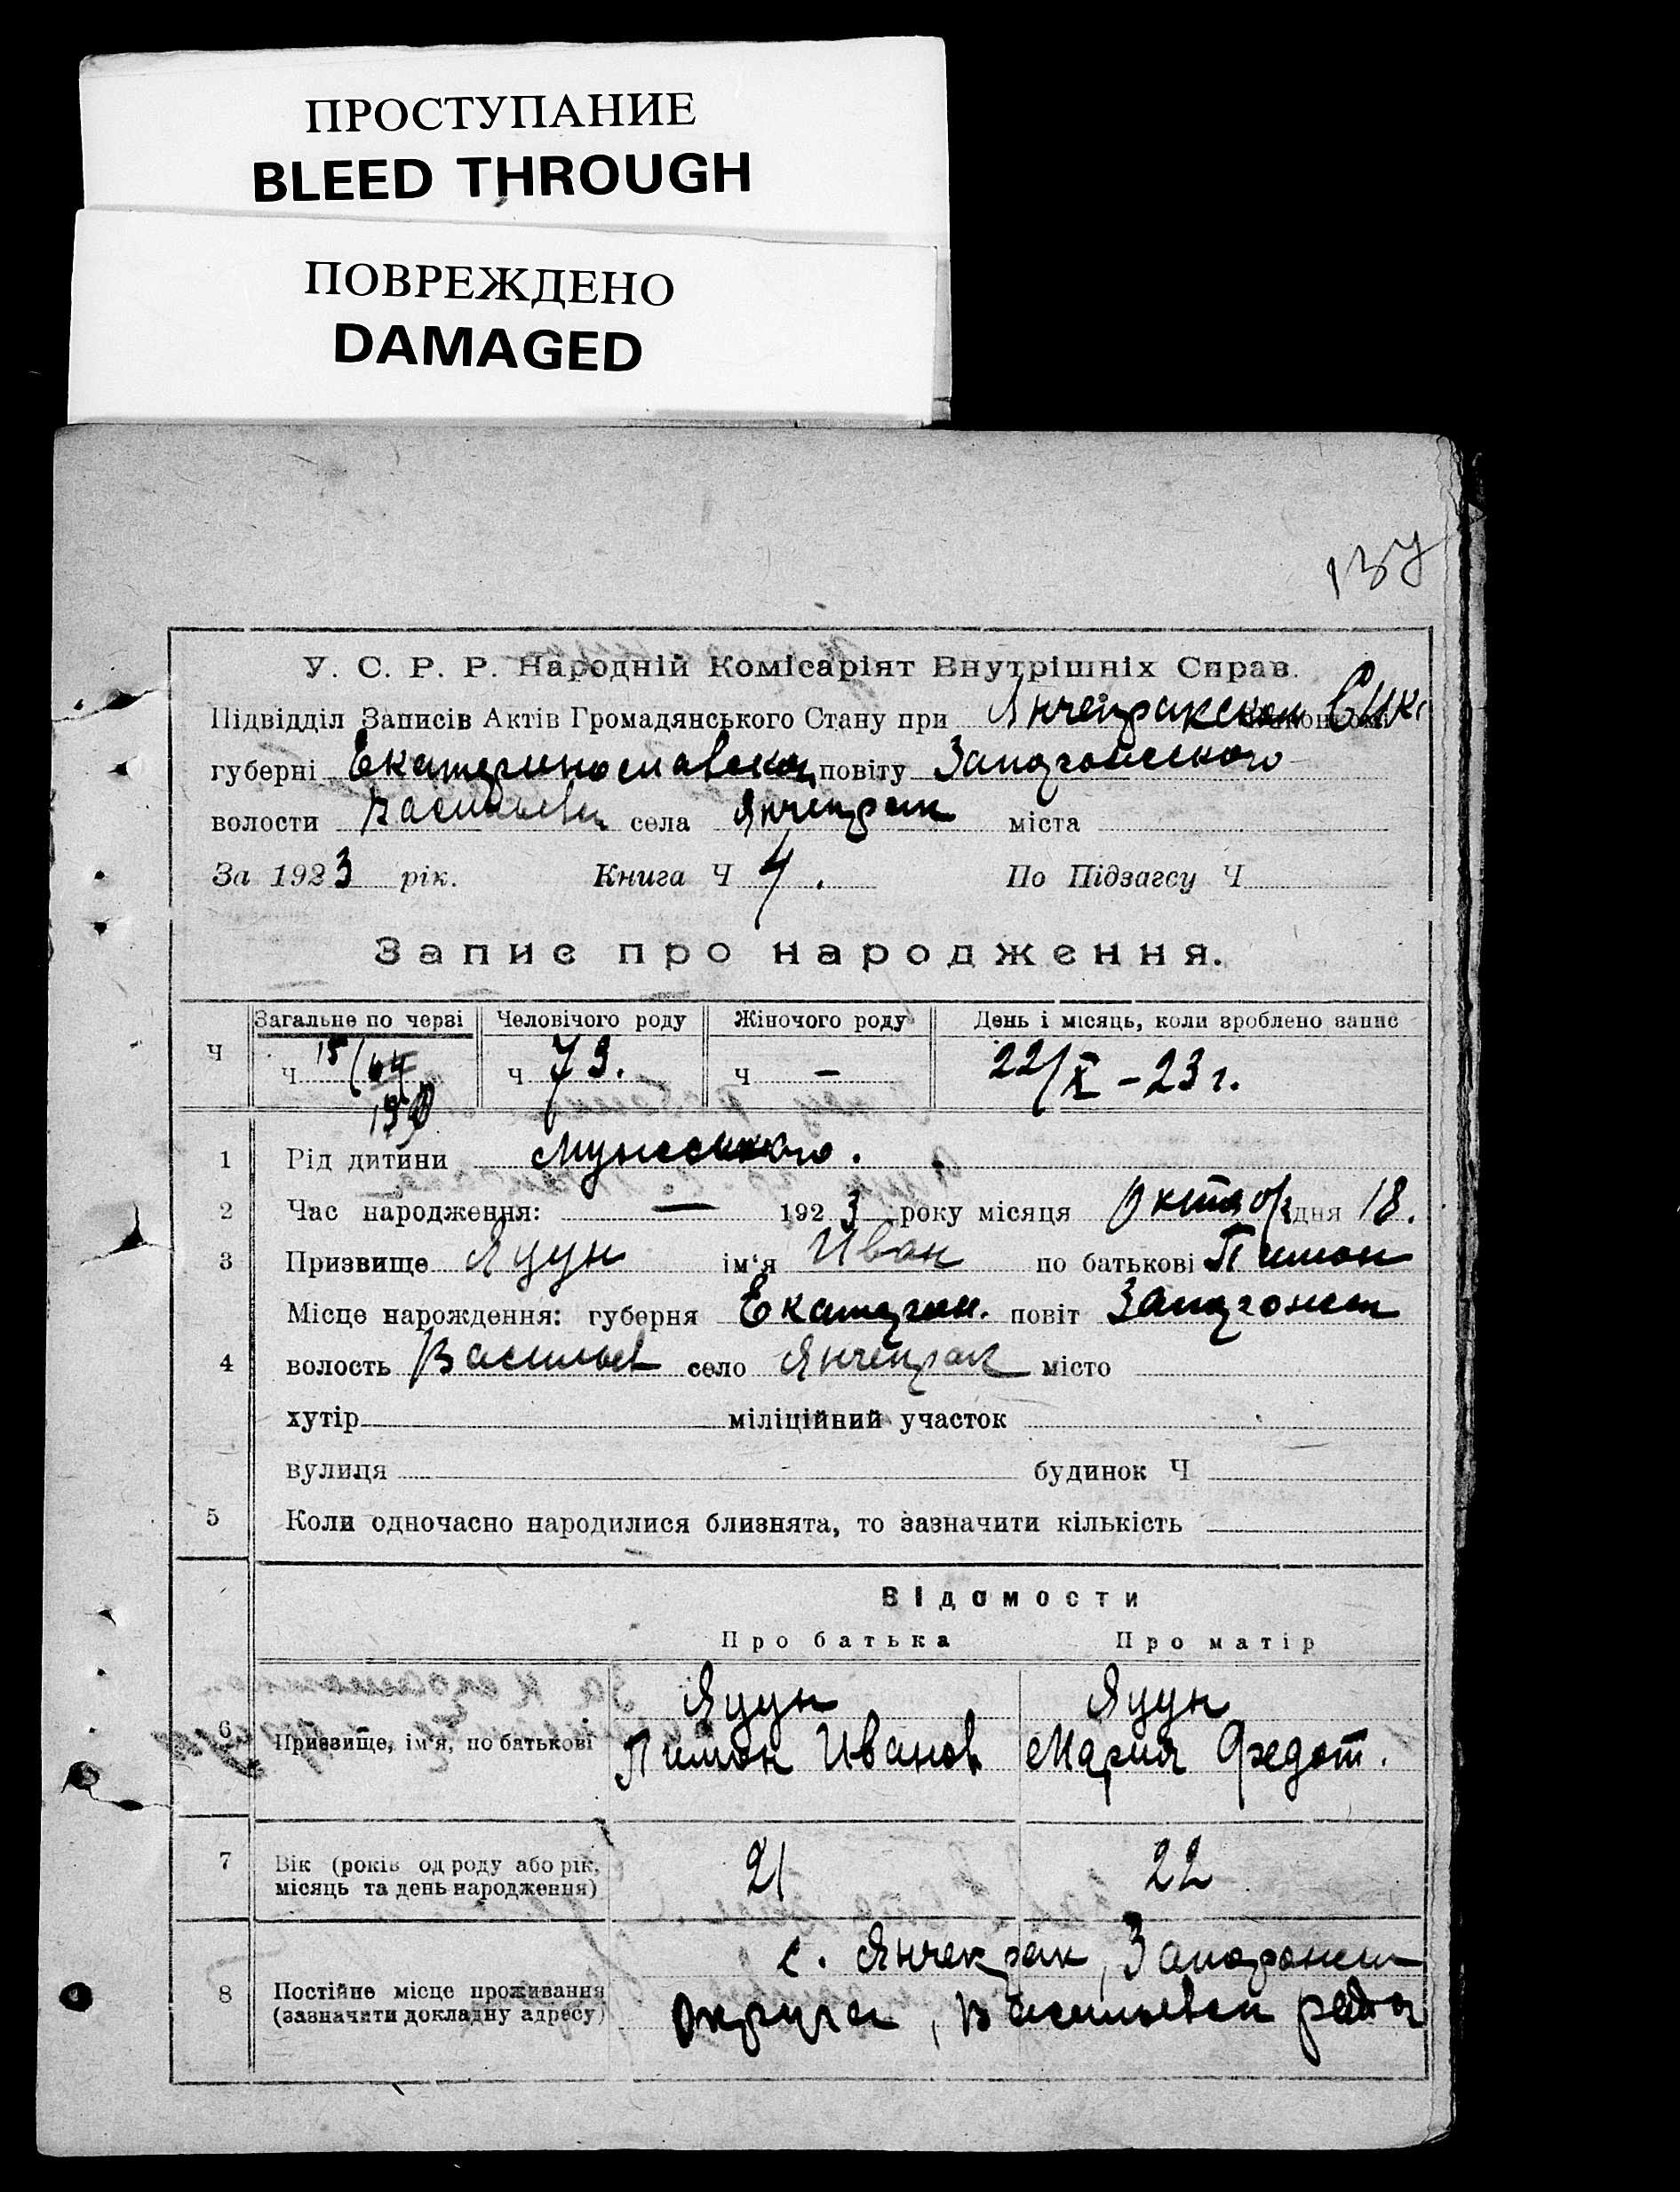 ПРОСТУПАНИЕ
BLEED THROUGH
ПОВРЕЖДЕНО
DAMAGED
137
У. С. Р. Р. Народній Комісаріят Внутрішніх Справ.
Підвідділ Записів Актів Громадянського Стану при Янчекракском
губерні Екатеринославской повіту Запорожского
волости Васильев села Янчекрак міста
За 1923 рік. Книга Ч 4. По Підзагсу Ч
Запис про народження.
Загальне по черзі Человічого роду Жіночого роду День і місяць, коли зроблено запис
Ч ч ч 73. ч — 22/X – 23 г.
1 Рід дитини Мужского.
2 Час народження: — 1923 року місяця Октяб дня 18.
3 Призвище Яцун ім'я Иван по батькові Пимон
Місце нарождення: губерня Екатерин. повіт Запорожск
4 волость Васильев село Янчекрак місто
хутір міліційний участок
вулиця будинок Ч
5 Коли одночасно народилися близнята, то зазначити кількість
Відомости
Про батька Про матір
Яцун Яцун
6 Призвище, ім'я, по батькові Пимон Иванов Мария Федот.
7 Вік (років од роду або рік, 21 22
місяць та день народження)
с. Янчекрак, Запорожск
8 Постійне місце проживання
(зазначити докладну адресу) Округа, Васильевск района